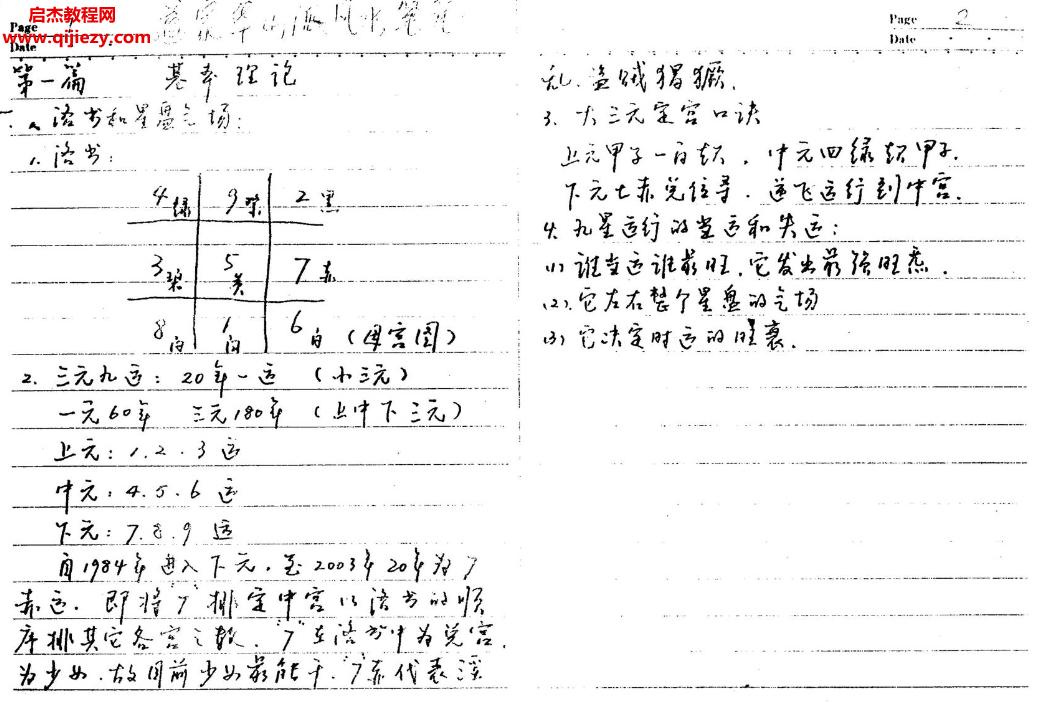 启杰教程网
www.qijiezy.com
Page 1
Date
风水笔记
第一篇 基本理论
一、洛书和星盘气场:
1. 洛书:
4绿 9紫 2黑
3碧 5黄 7赤
8白 1白 6白 (母宫图)
2. 三元九运: 20年一运 (小三元)
一元60年 三元180年 (上中下三元)
上元: 1. 2. 3 运
中元: 4. 5. 6 运
下元: 7. 8. 9 运
自1984年进入下元. 至2003年20年为7
赤运. 即将"7"排定中宫以洛书的顺
序排其它各宫之数. "7"在洛书中为兑宫
为少女. 故目前少女最能干. "7"赤代表淫
Page 2
Date
乱. 盗贼猖獗.
3. 大三元定宫口诀
上元甲子一白起, 中元四绿起甲子.
下元七赤兑位寻. 逆飞运行到中宫.
4. 九星运行的当运和失运:
(1) 谁当运谁最旺. 它发出最强旺炁.
(2). 它左右整个星盘的气场
(3) 它决定时运的旺衰.